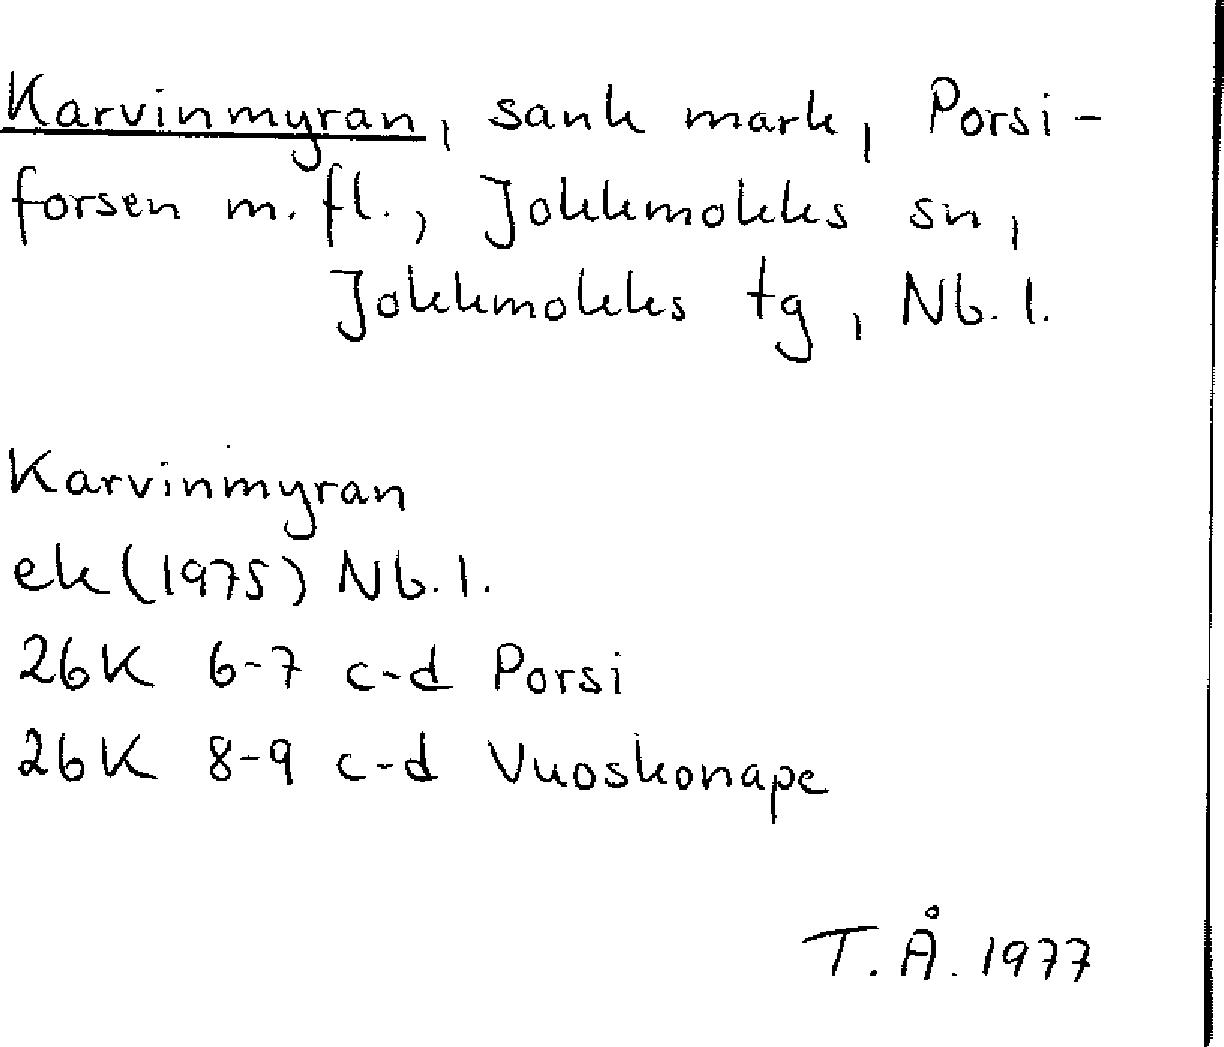 Karvinmyran, sank mark, Porsi-
forsen m. fl., Jokkmokks sn,
Jokkmokks tg, Nb. l.
Karvinmyran
ek (1975) Nb. l.
26K 6-7 c-d Porsi
26K 8-9 c-d Vuoskonape
T. Å. 1977